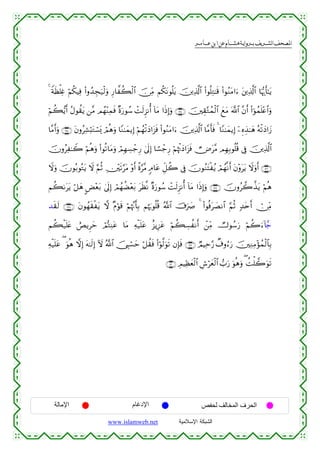 المصحف الشريف برواية هشام عن ابن عامر
يَـٰٓأَيُّهَا ٱلَّذِينَ ءَامَنُوا۟ قَـٰتِلُوا۟ ٱلَّذِينَ يَلُونَكُم مِّنَ ٱلْكُفَّارِ وَلْيَجِدُوا۟ فِيكُمْ غِلْظَةً ۚ
وَٱعْلَمُوٓا۟ أَنَّ ٱللَّهَ مَعَ ٱلْمُتَّقِينَ وَإِذَا مَآ أُنزِلَتْ سُورَةٌ فَمِنْهُم مَّن يَقُولُ أَيُّكُمْ
زَادَتْهُ هَـٰذِهِۦٓ إِيمَـٰنًا ۚ فَأَمَّا ٱلَّذِينَ ءَامَنُوا۟ فَزَادَتْهُمْ إِيمَـٰنًا وَهُمْ يَسْتَبْشِرُونَ وَأَمَّا
ٱلَّذِينَ فِى قُلُوبِهِم مَّرَضٌ فَزَادَتْهُمْ رِجْسًا إِلَىٰ رِجْسِهِمْ وَمَاتُوا۟ وَهُمْ كَـٰفِرُونَ
أَوَلَا يَرَوْنَ أَنَّهُمْ يُفْتَنُونَ فِى كُلِّ عَامٍ مَّرَّةً أَوْ مَرَّتَيْنِ ثُمَّ لَا يَتُوبُونَ وَلَا
هُمْ يَذَّكَّرُونَ وَإِذَا مَآ أُنزِلَتْ سُورَةٌ نَّظَرَ بَعْضُهُمْ إِلَىٰ بَعْضٍ هَلْ يَرَىٰكُم
مِّنْ أَحَدٍ ثُمَّ ٱنصَرَفُوا۟ ۚ صَرَفَ ٱللَّهُ قُلُوبَهُم بِأَنَّهُمْ قَوْمٌ لَّا يَفْقَهُونَ لَقَد
جَآءَكُمْ رَسُولٌ مِّنْ أَنفُسِكُمْ عَزِيزٌ عَلَيْهِ مَا عَنِتُّمْ حَرِيصٌ عَلَيْكُم
بِٱلْمُؤْمِنِينَ رَءُوفٌ رَّحِيمٌ فَإِن تَوَلَّوْا۟ فَقُلْ حَسْبِىَ ٱللَّهُ لَآ إِلَـٰهَ إِلَّا هُوَ ۖ عَلَيْهِ
تَوَكَّلْتُ ۖ وَهُوَ رَبُّ ٱلْعَرْشِ ٱلْعَظِيمِ
الحرف المخالف لحفص الإدغام الإمالة
الشبكة الإسلامية www.islamweb.net